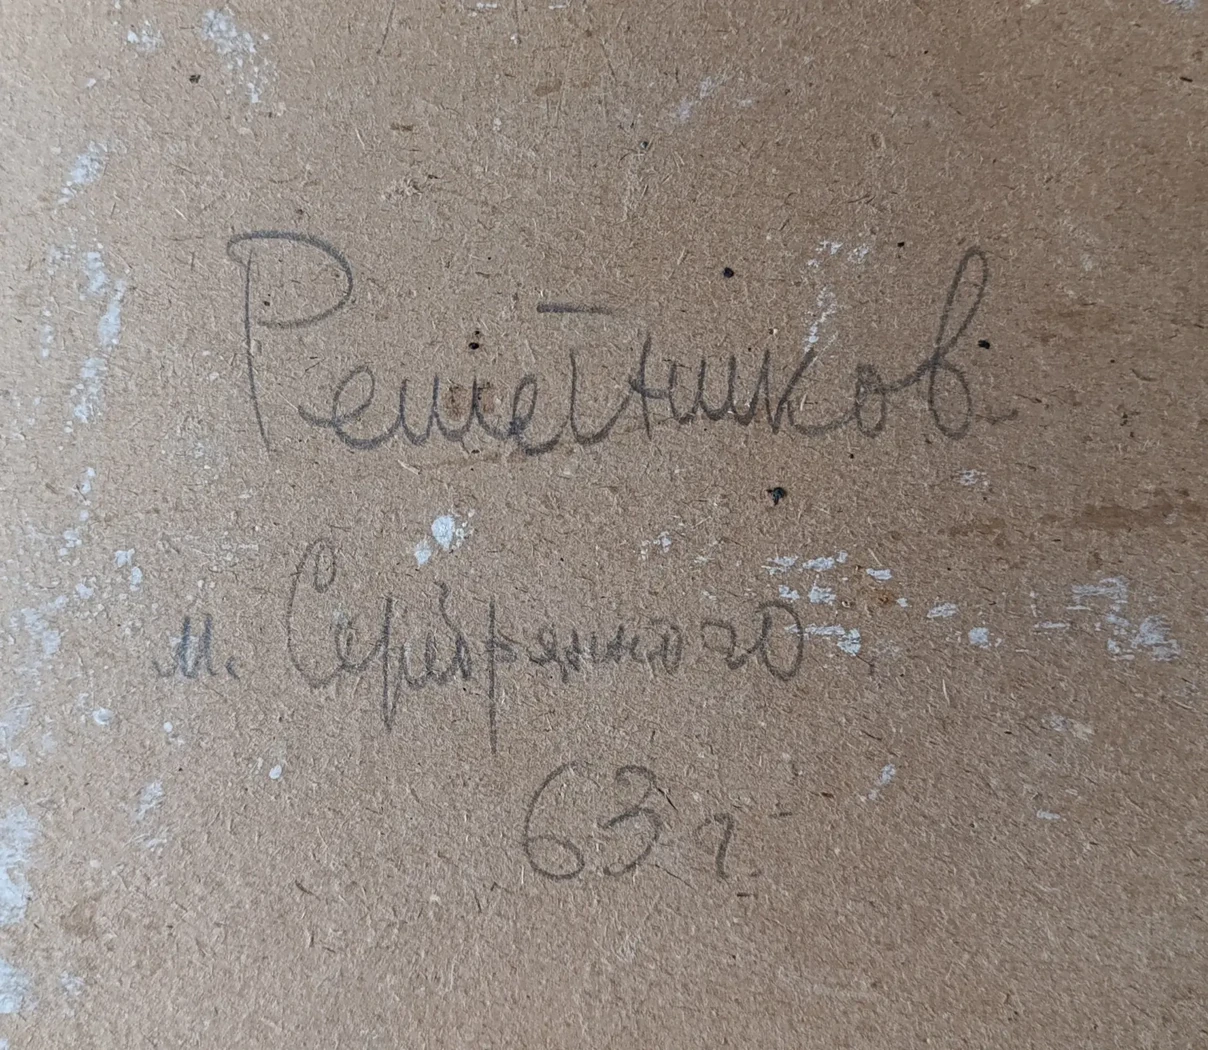 Решетников
м. Серебрянного
63 г.